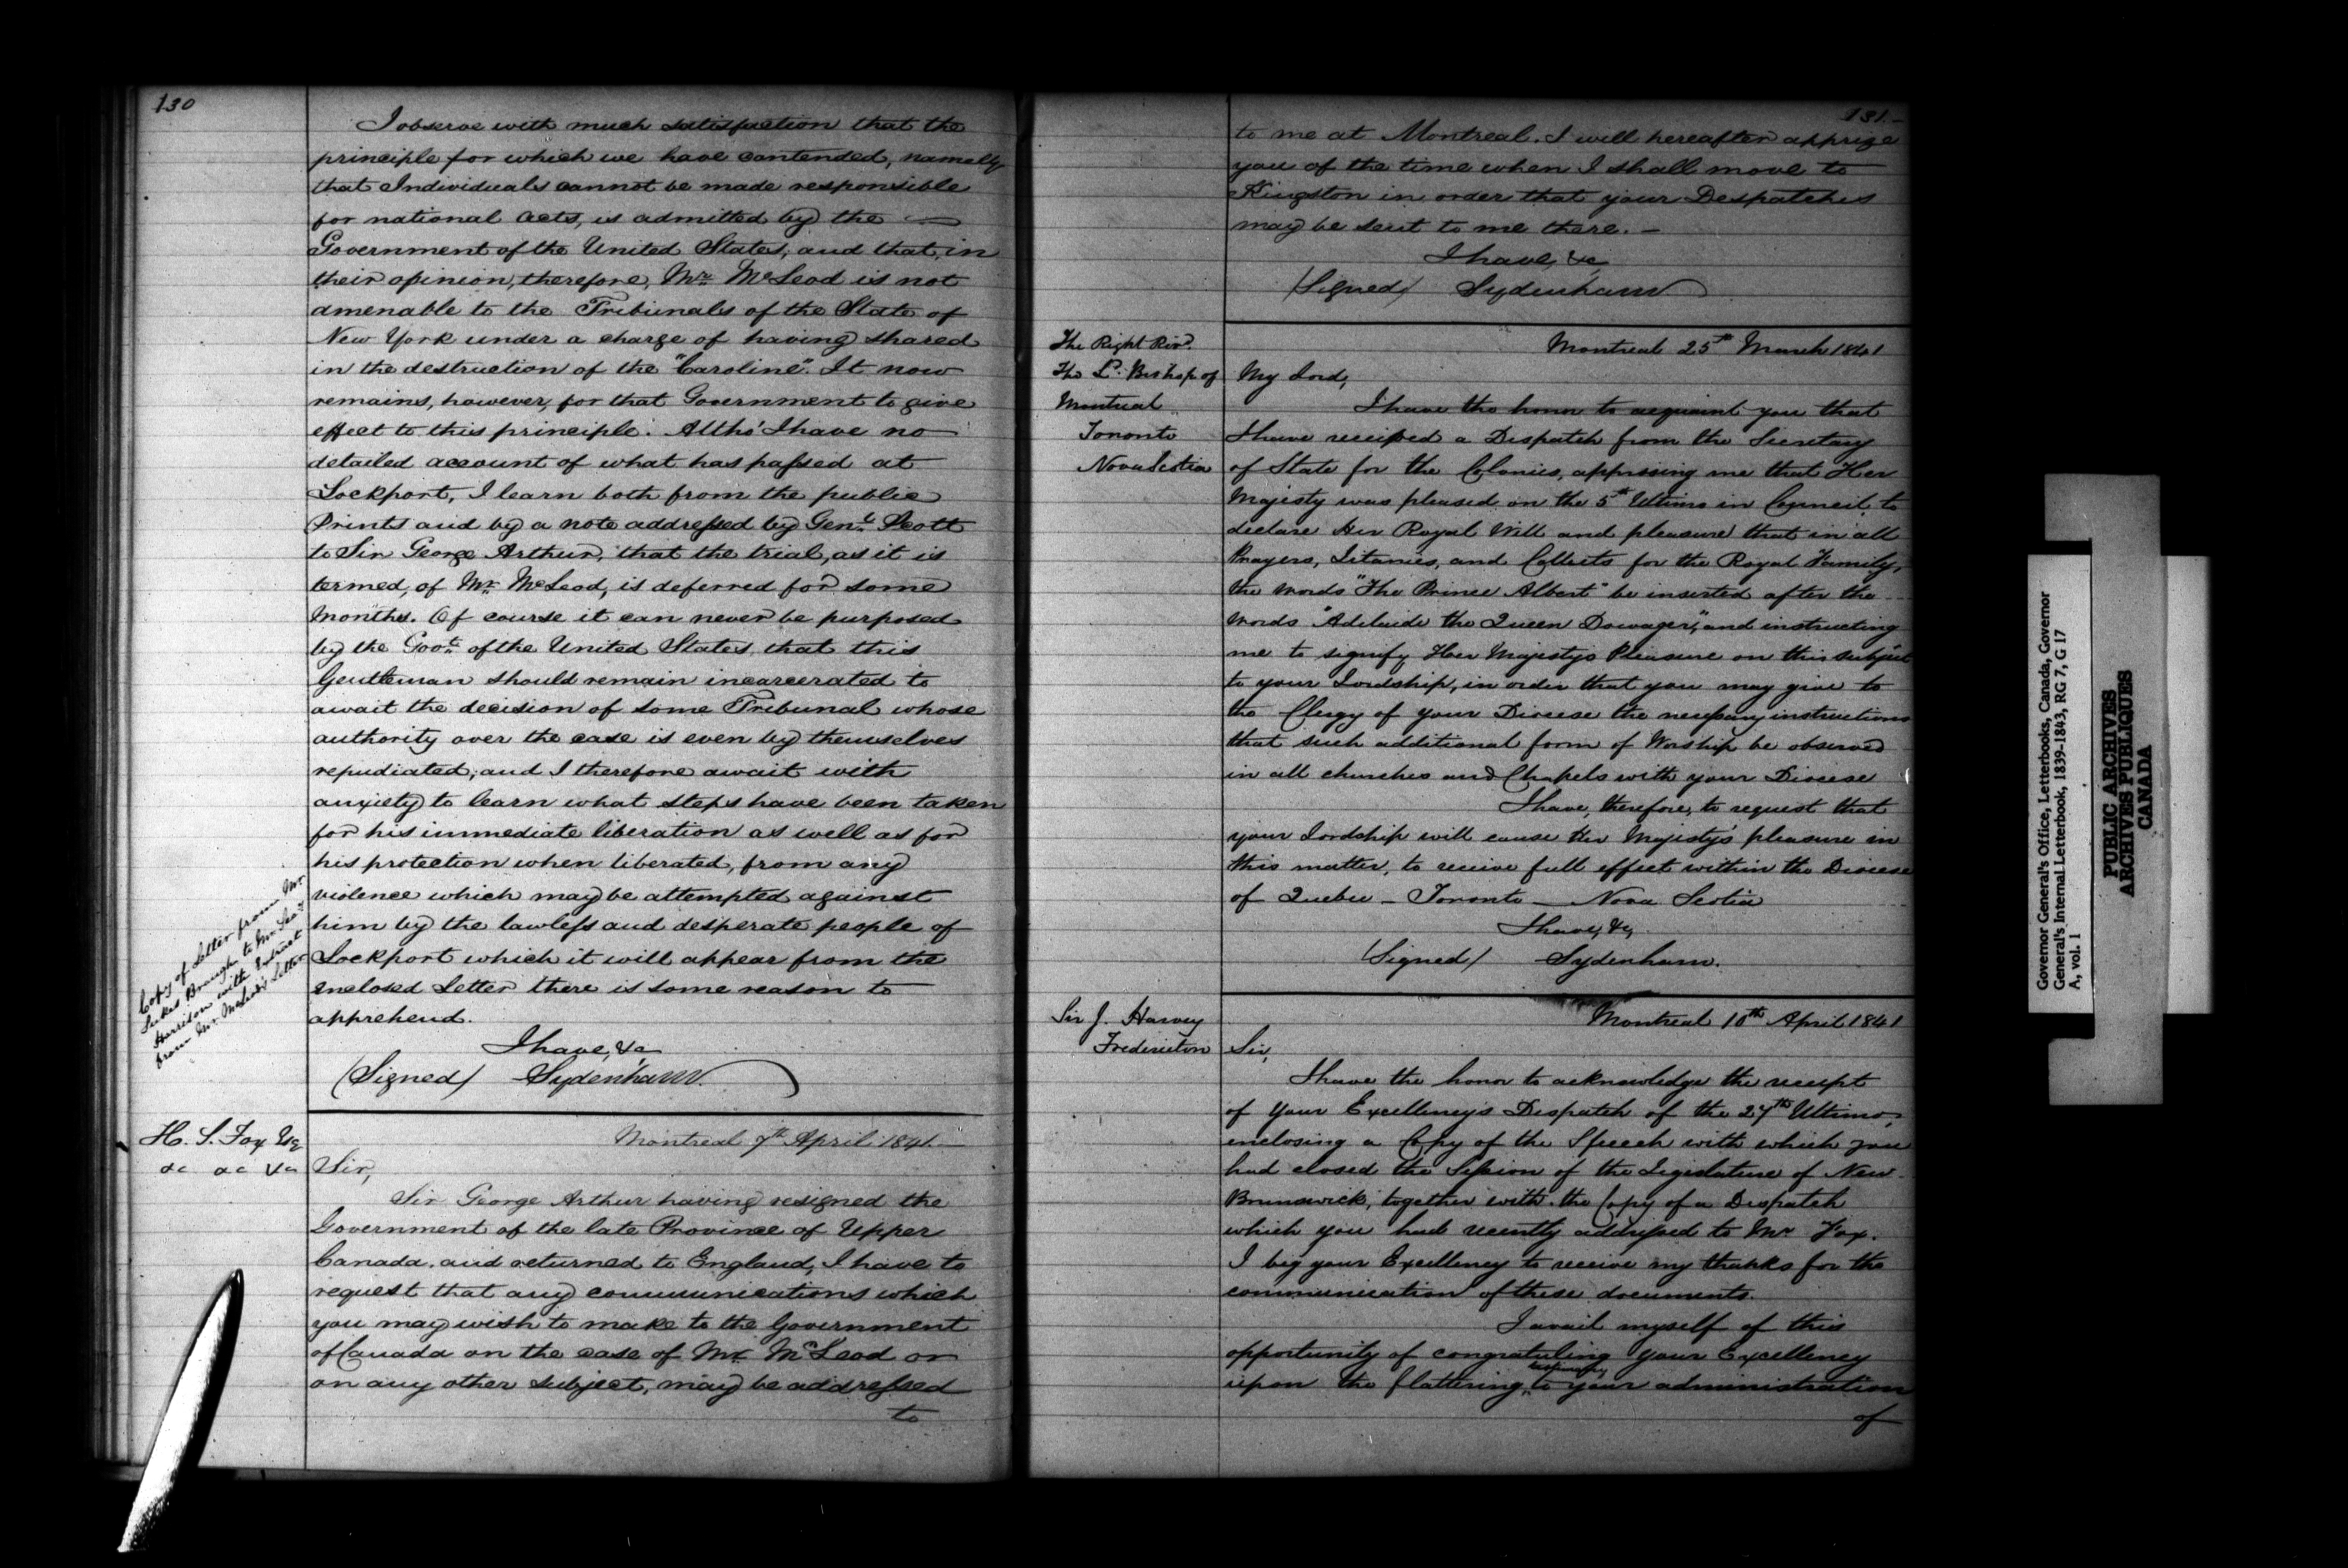 130
I observe with much satisfaction that the
principle for which we have contended, namely
that Individuals cannot be made responsible
for national acts, is admitted by the —
Government of the United States, and that, in
their opinion, therefore, Mr. McLeod is not
amenable to the Tribunals of the State of
New York under a charge of having shared
in the destruction of the "Caroline". It now
remains, however, for that Government to give
effect to this principle. Altho' I have no
detailed account of what has passed at
Lockport, I learn both from the public
Prints and by a note addressed by Genl. Scott
to Sir George Arthur, that the trial, as it is
termed, of Mr. McLeod, is deferred for some
Months. Of course it can never be purposed
by the Govt. of the United States that this
Gentleman should remain incarcerated to
await the decision of some Tribunal whose
authority over the case is even by themselves
repudiated, and I therefore await with
anxiety to learn what steps have been taken
for his immediate liberation as well as for
his protection when liberated, from any
violence which may be attempted against
him by the lawless and desperate people of
Lockport which it will appear from the
enclosed Letter there is some reason to
apprehend.
Copy of Letter from Mr.
Sukes Brough to Mr. Secy
Harrison with Extract
from Mr. McLeod's Letter
I have, &c
(Signed) Sydenham.
H. S. Fox Esq
&c &c &c
Montreal 7th April 1841.—
Sir,
Sir George Arthur having resigned the
Government of the late Province of Upper
Canada, and returned to England, I have to
request that any communications which
you may wish to make to the Government
of Canada on the case of Mr. McLeod or
on any other subject, may be addressed
to
131.-
to me at Montreal. I will hereafter apprize
you of the time when I shall move to
Kingston in order that your Despatches
may be sent to me there. —
I have, &c
(Signed) Sydenham
The Right Revd.
The Ld. Bishop of
Montreal
Toronto
Nova Scotia
Montreal 25th March 1841
My Lord,
I have the honor to acquaint you that
I have received a Despatch from the Secretary
of State for the Colonies, apprising me that Her
Majesty was pleased on the 5th Ultimo in Council, to
declare Her Royal Will and pleasure that in all
Prayers, Litanies, and Collects for the Royal Family,
the words "The Prince Albert" be inserted after the
words "Adelaide the Queen Dowager," and instructing
me to signify Her Majesty's Pleasure on this subject
to your Lordship, in order that you may give to
the Clergy of your Diocese the necessary instructions
that such additional form of Worship be observed
in all churches and Chapels with your Diocese
I have, therefore, to request that
your Lordship will cause Her Majesty's pleasure in
this matter, to receive full effect within the Diocese
of Quebec — Toronto — Nova Scotia
I have, &c,
(Signed) Sydenham.
Sir J. Harvey
Fredericton
Montreal 10th April 1841
Sir,
I have the honor to acknowledge the receipt
of Your Excellency's Despatch of the 27th Ultimo,
enclosing a Copy of the Speech with which you
had closed the Session of the Legislature of New
Brunswick, together with the Copy of a Despatch
which you had recently addressed to Mr Fox.
I beg your Excellency to receive my thanks for the
communication of these documents.
I avail myself of this
opportunity of congratuling your Excellency
upon the flattering testimony to your administration
of
Governor General's Office, Letterbooks, Canada, Governor
General's Internal Letterbook, 1839-1843, RG 7, G 17
A, vol. 1
PUBLIC ARCHIVES
ARCHIVES PUBLIQUES
CANADA